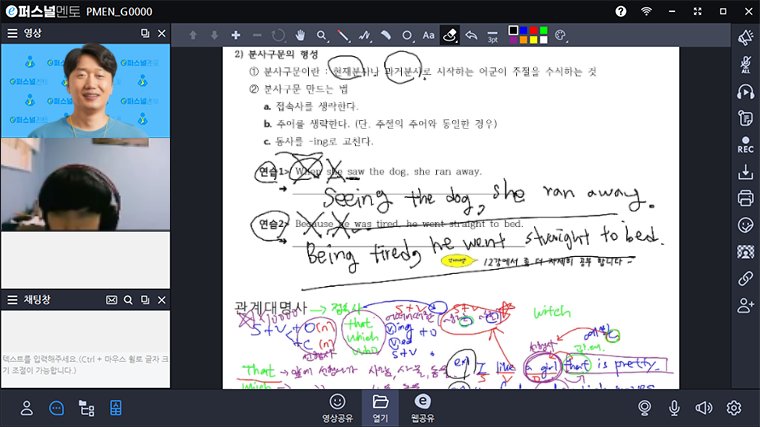 e퍼스널멘토 PMEN_G0000
영상
e퍼스널멘토
3pt
REC
2) 분사구문의 형성
① 분사구문이란 : 현재분사나 과거분사로 시작하는 어군이 주절을 수식하는 것
② 분사구문 만드는 법
a. 접속사를 생략한다.
b. 주어를 생략한다. (단. 주절의 주어와 동일한 경우)
c. 동사를 -ing로 고친다.
연습1> When she saw the dog, she ran away.
→ Seeing the dog, she ran away.
연습2> Because he was tired, he went straight to bed.
→ Being tired, he went straight to bed.
12강에서 좀 더 자세히 공부 합니다~
채팅창
텍스트를 입력해주세요. (Ctrl + 마우스 휠로 글자 크기 조절이 가능합니다.)
관계대명사 → 접속사
S+V
witch
S+V
O(n)
C(n)
that
which
who
ing
ed
S+V
선행사
that →
ex) I like a girl that is pretty.
which
영상공유
열기
웹공유